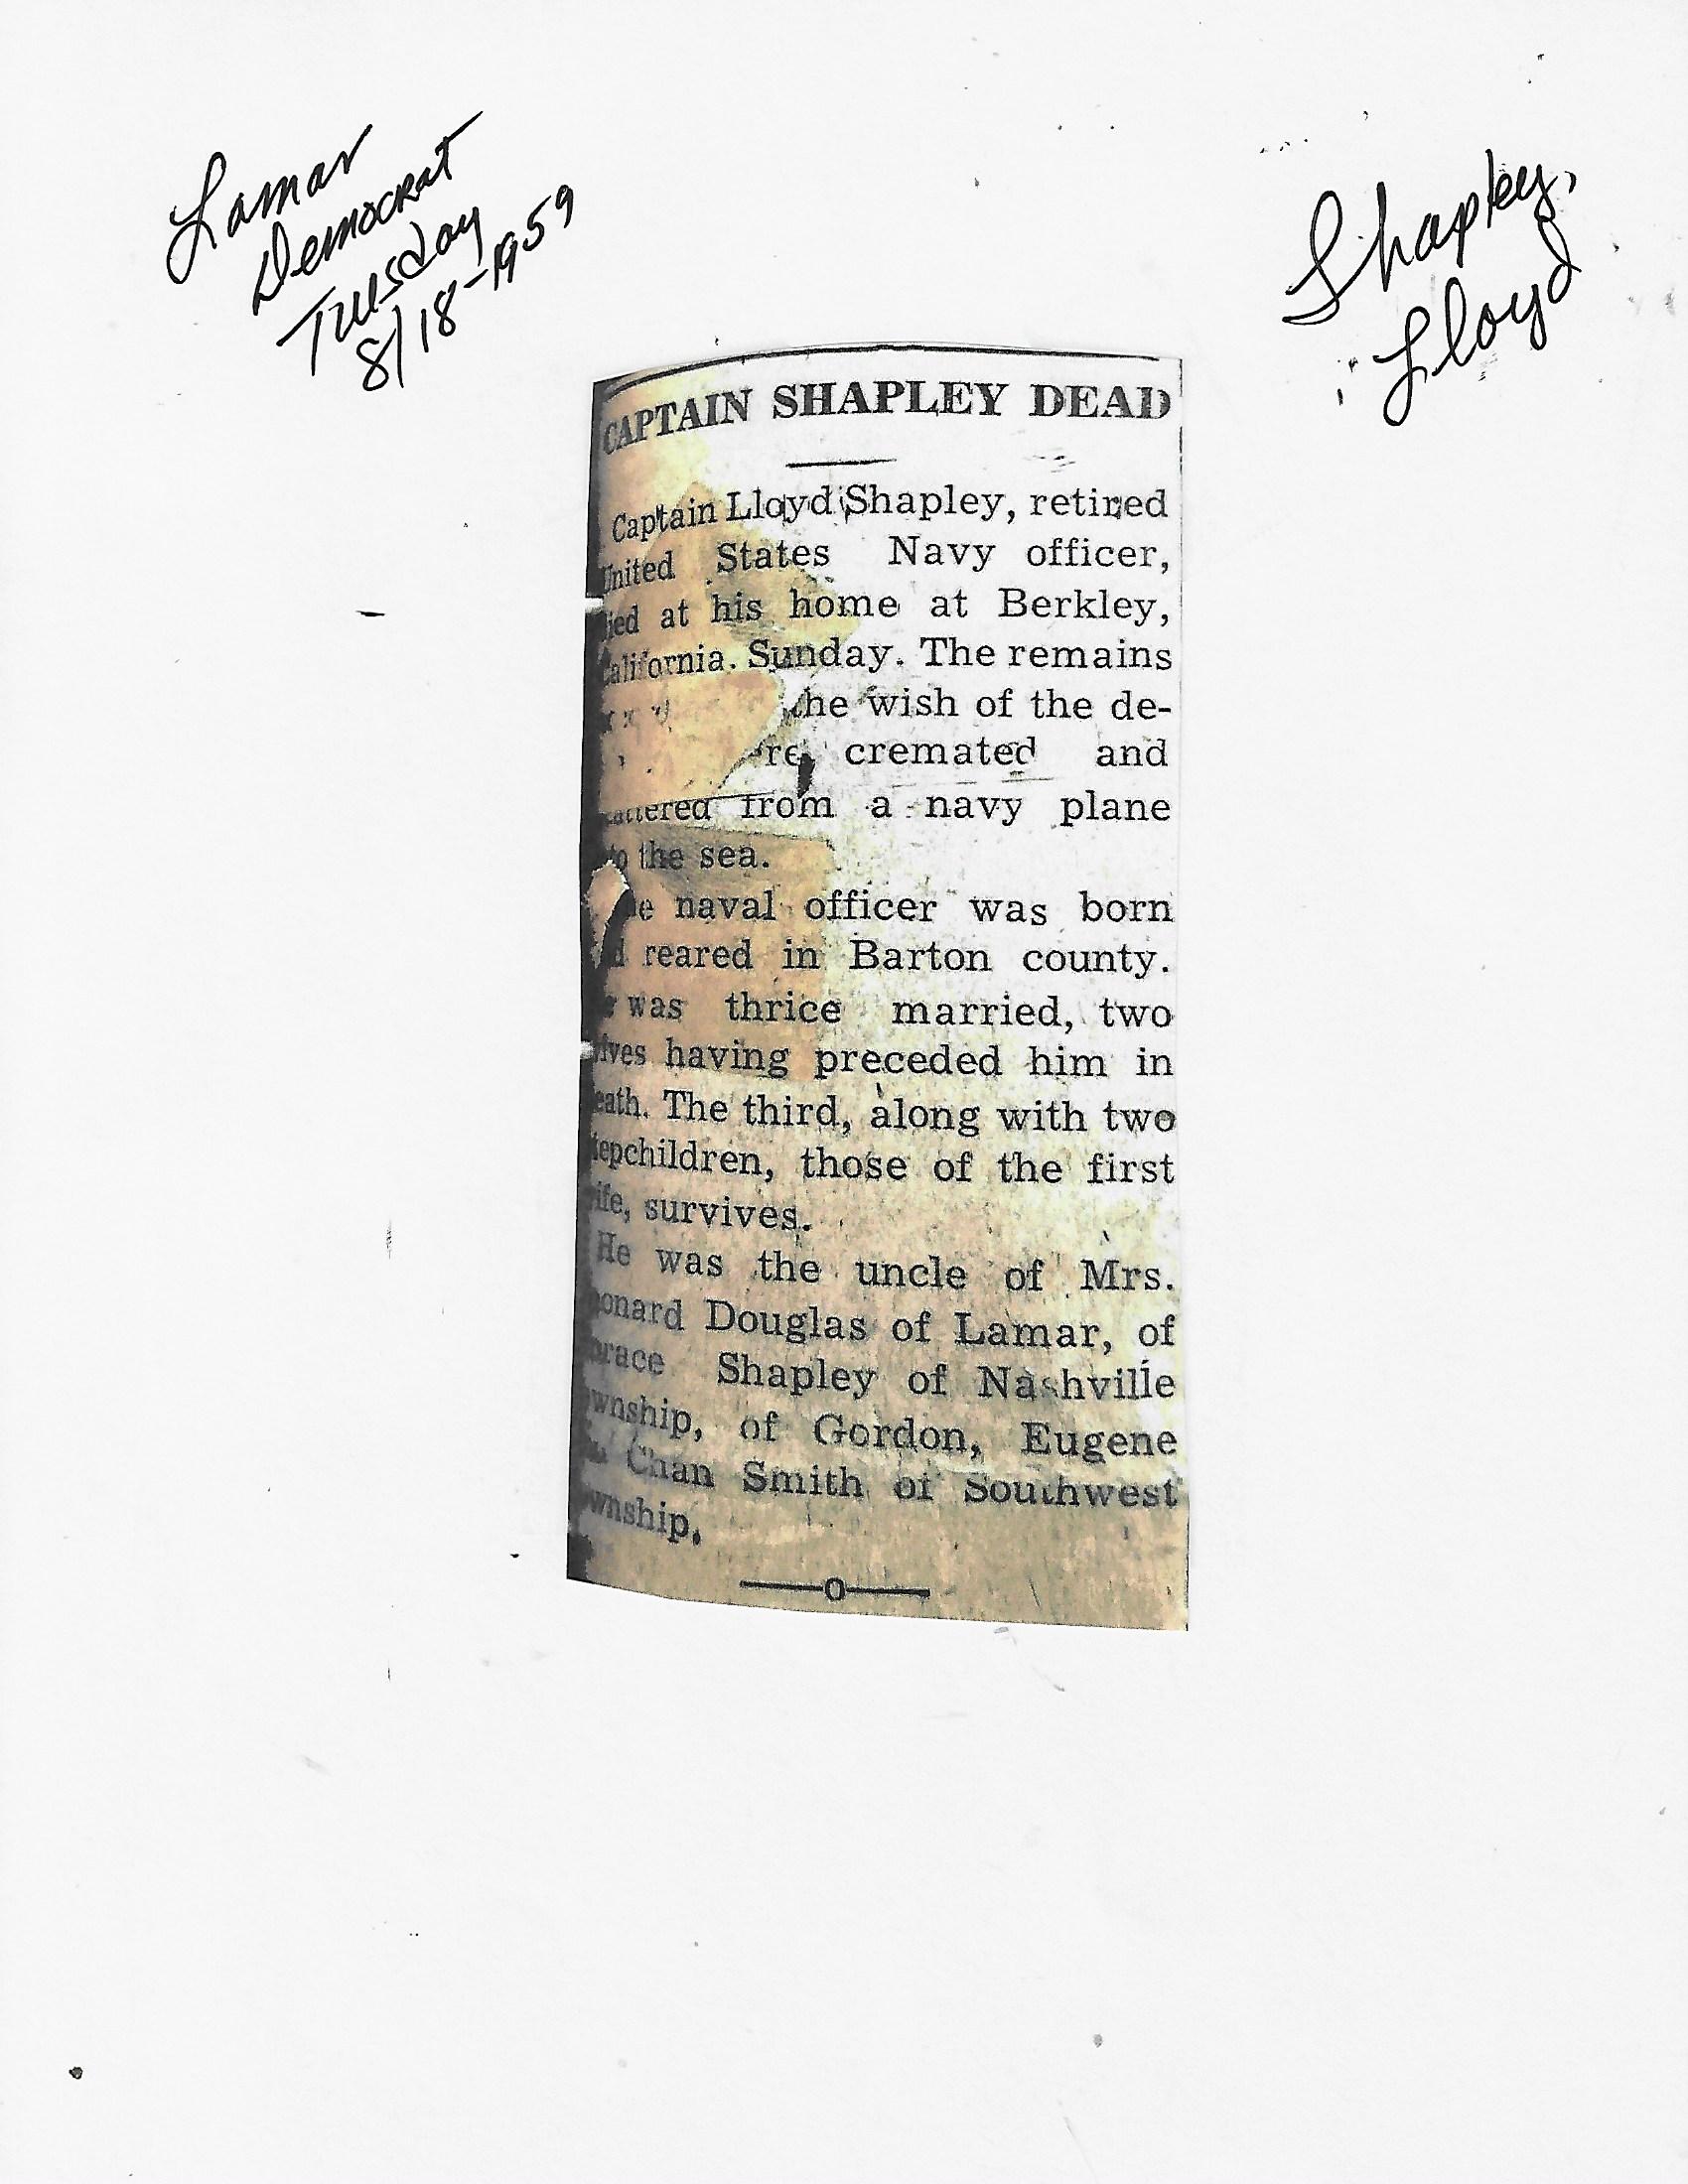 Lamar
Democrat
Tuesday
8/18-1959
Shapley,
Lloyd
CAPTAIN SHAPLEY DEAD
Captain Lloyd Shapley, retired
United States Navy officer,
ied at his home at Berkley,
alifornia. Sunday. The remains
he wish of the de-
re cremated and
attered from a navy plane
to the sea.
e naval officer was born
d reared in Barton county.
e was thrice married, two
ives having preceded him in
eath. The third, along with two
tepchildren, those of the first
ife, survives.
He was the uncle of Mrs.
eonard Douglas of Lamar, of
orace Shapley of Nashville
ownship, of Gordon, Eugene
Chan Smith of Southwest
ownship.